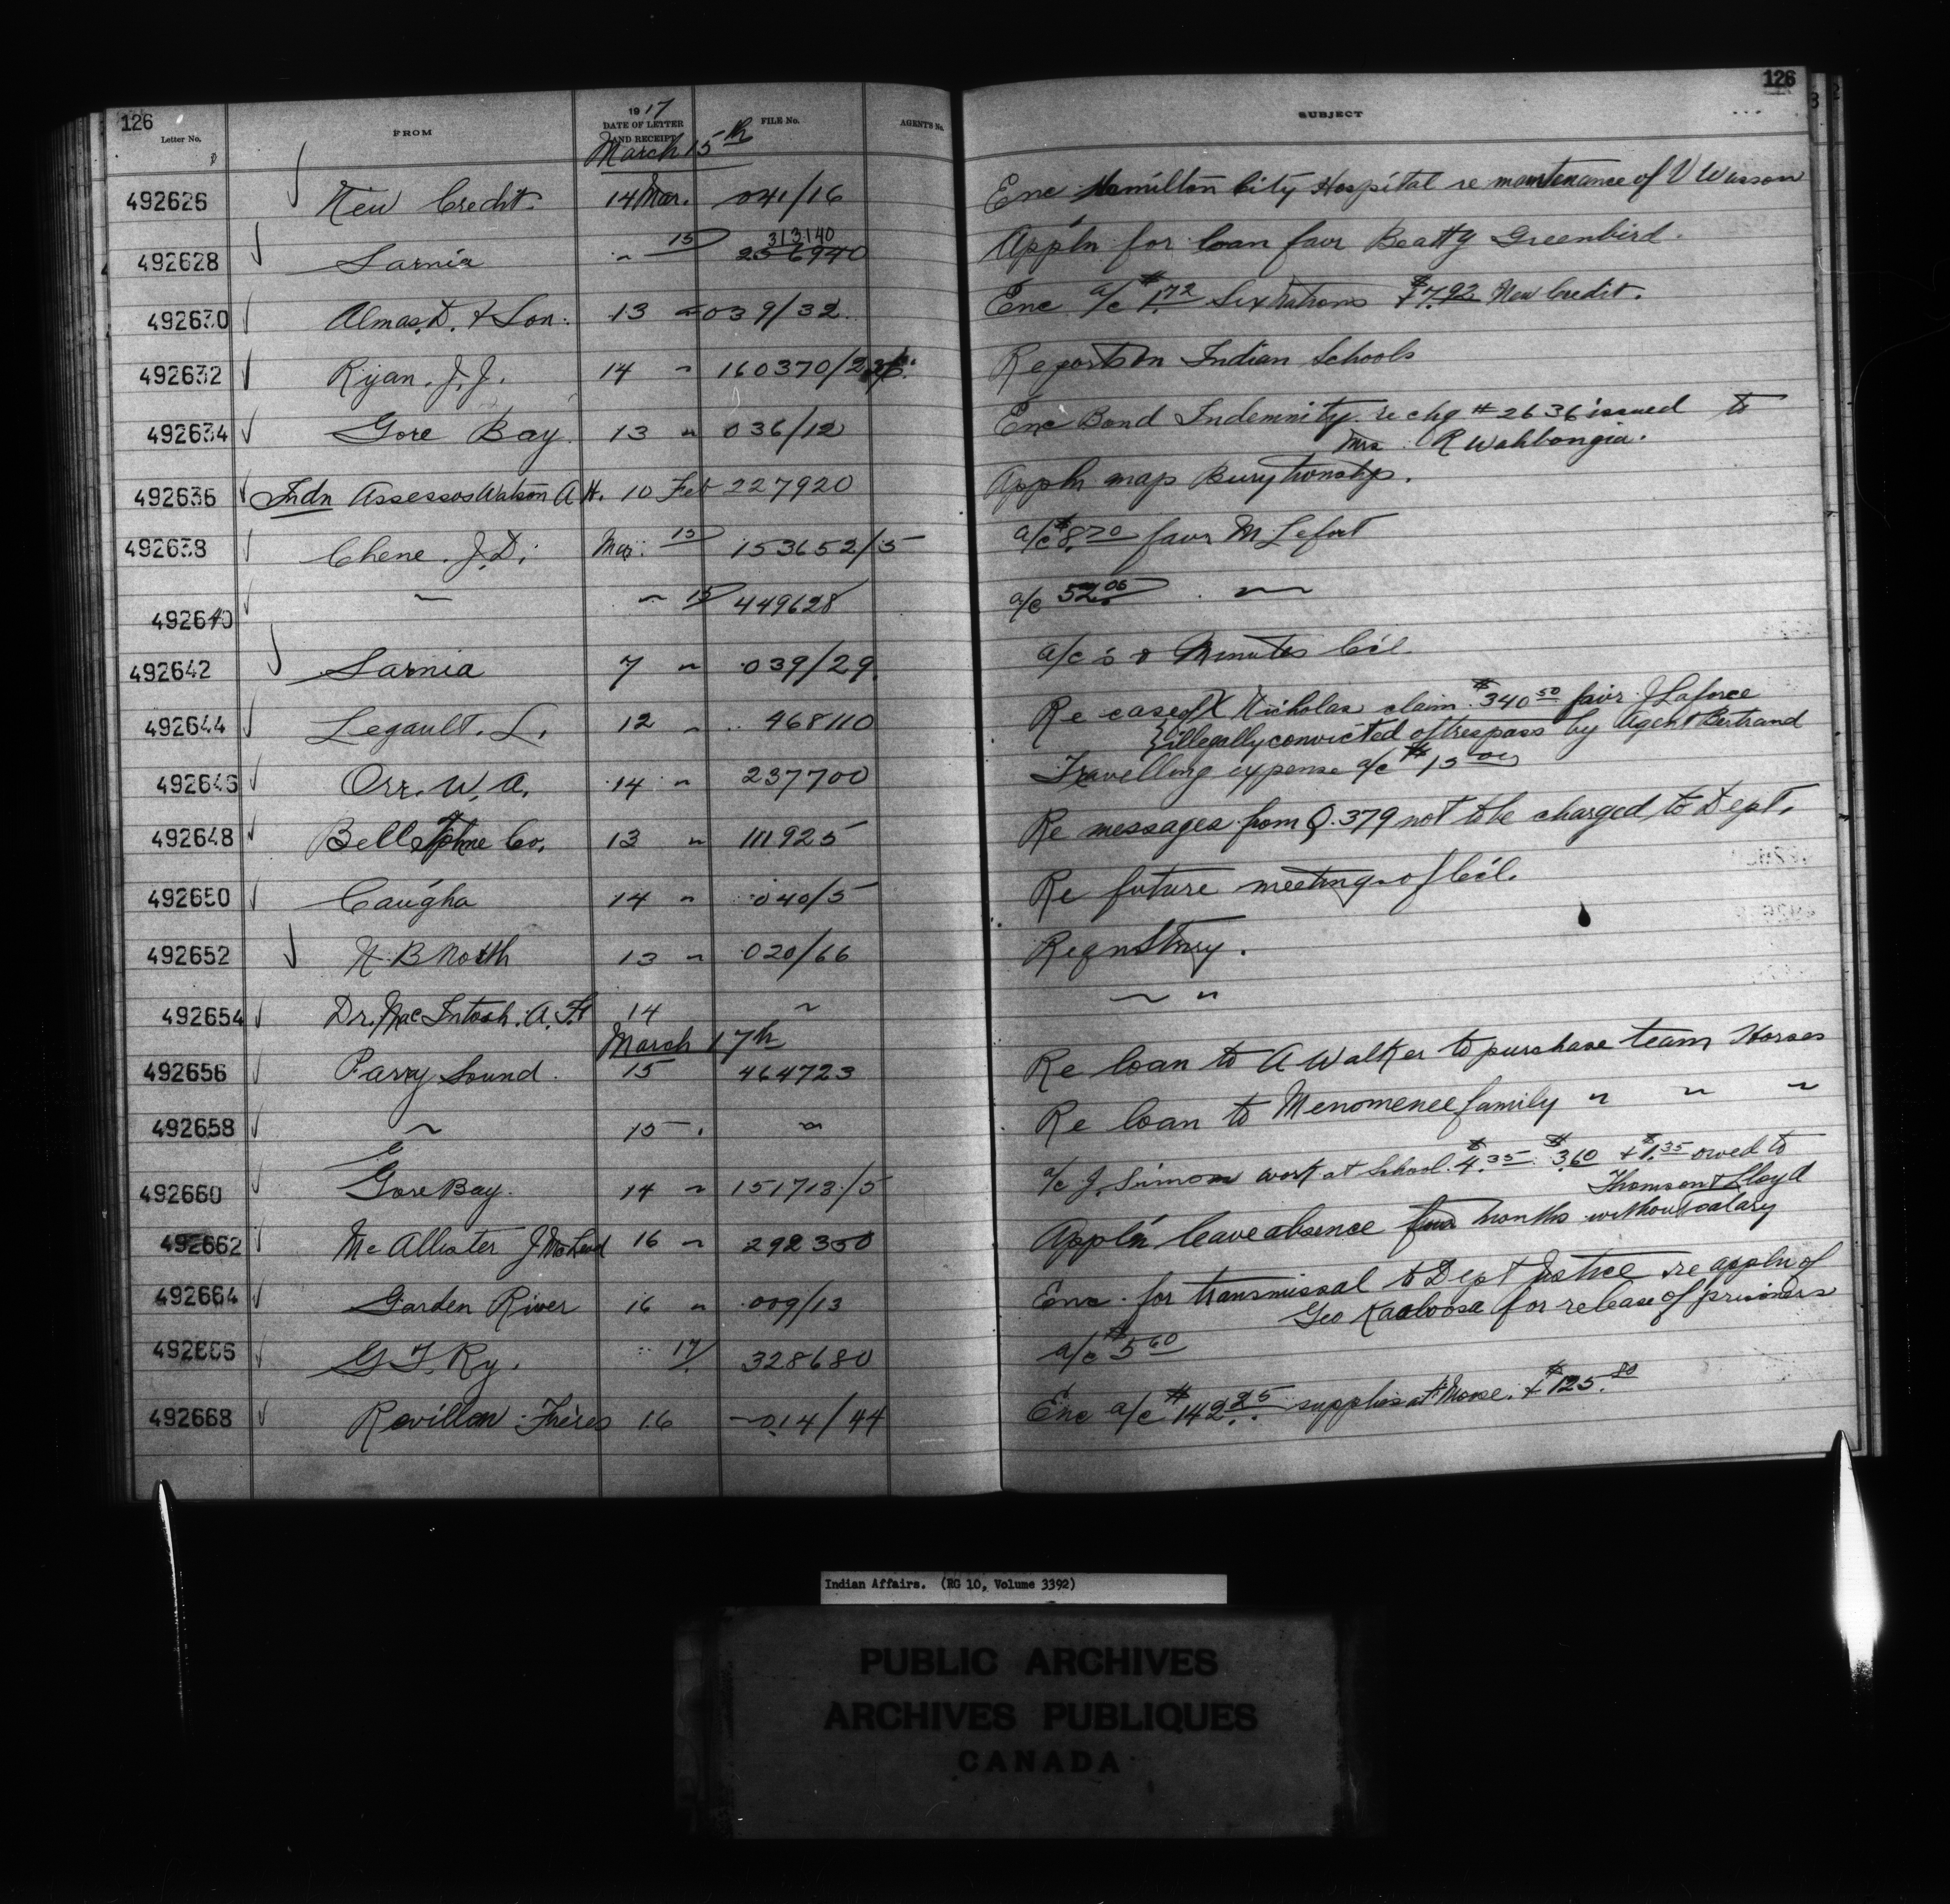 126
126
Letter No.
FROM
1917
DATE OF LETTER
AND RECEIPT
FILE No.
AGENT'S No.
SUBJECT
March 15th
492626 New Credit 14 Mar. 041/16 Enc Hamilton City Hospital re maintenance of V Wesson
313140
492628 Sarnia " 15 256940 Appln for loan favr Beatty Greenbird.
492630 Almas, D. & Son. 13 " 039/32 Enc a/c $1.72 Six Nations $7.92 New Credit.
492632 Ryan. J. J. 14 " 160370/2 Reports on Indian Schools
492634 Gore Bay 13 " 036/12 Enc Bond Indemnity re chq # 2636 issued to
Mrs. R Wahbongia.
492636 Indn Assessos Watson A H. 10 Feb 227920 Appln map Bury township.
492638 Chene. J. D. Mar. 15 153652/5 a/c $8.70 favr M Lefort
492640 " " 15 449628 a/c 52.06 "
492642 Sarnia 7 " 039/29 a/c's & Minutes C'cil.
492644 Legault. L. 12 " 468110 Re case of X Nicholas claim $340.50 favr J Laforce
illegally convicted of trespass by Agent Bertrand
492646 Orr. W. A. 14 " 237700 Travelling expense a/c $15.00
492648 Bell Tphne Co. 13 " 111925 Re messages from Q.379 not to be charged to Dept.
492650 Caugha 14 " 040/5 Re future meetings of C'cil.
492652 N. B North 13 " 020/66 Reqn Stnry.
492654 Dr. MacIntosh. A. 14 " " "
March 17th
492656 Parry Sound. 15 464723 Re loan to A Walker to purchase team Horses
492658 " 15 " Re loan to Menomenee family " " "
492660 Gore Bay. 14 " 151713/5 a/c J. Simon work at School. $4.35 $3.60 + $1.35 owed to
Thomson & Lloyd
492662 McAllister J McLeod 16 " 292350 Appl'n leave absence months without salary
492664 Garden River 16 " 009/13 Enc. for transmissal to Dept Justice re appln of
Geo Kaoloosa for release of prisoners
492666 G T. Ry. " 17 328680 a/c $5.60
492668 Revillon Frères 16 014/44 Enc a/c $142.25 supplies at Ft Moose. + $125.80
Indian Affairs. (RG 10, Volume 3392)
PUBLIC ARCHIVES
ARCHIVES PUBLIQUES
CANADA